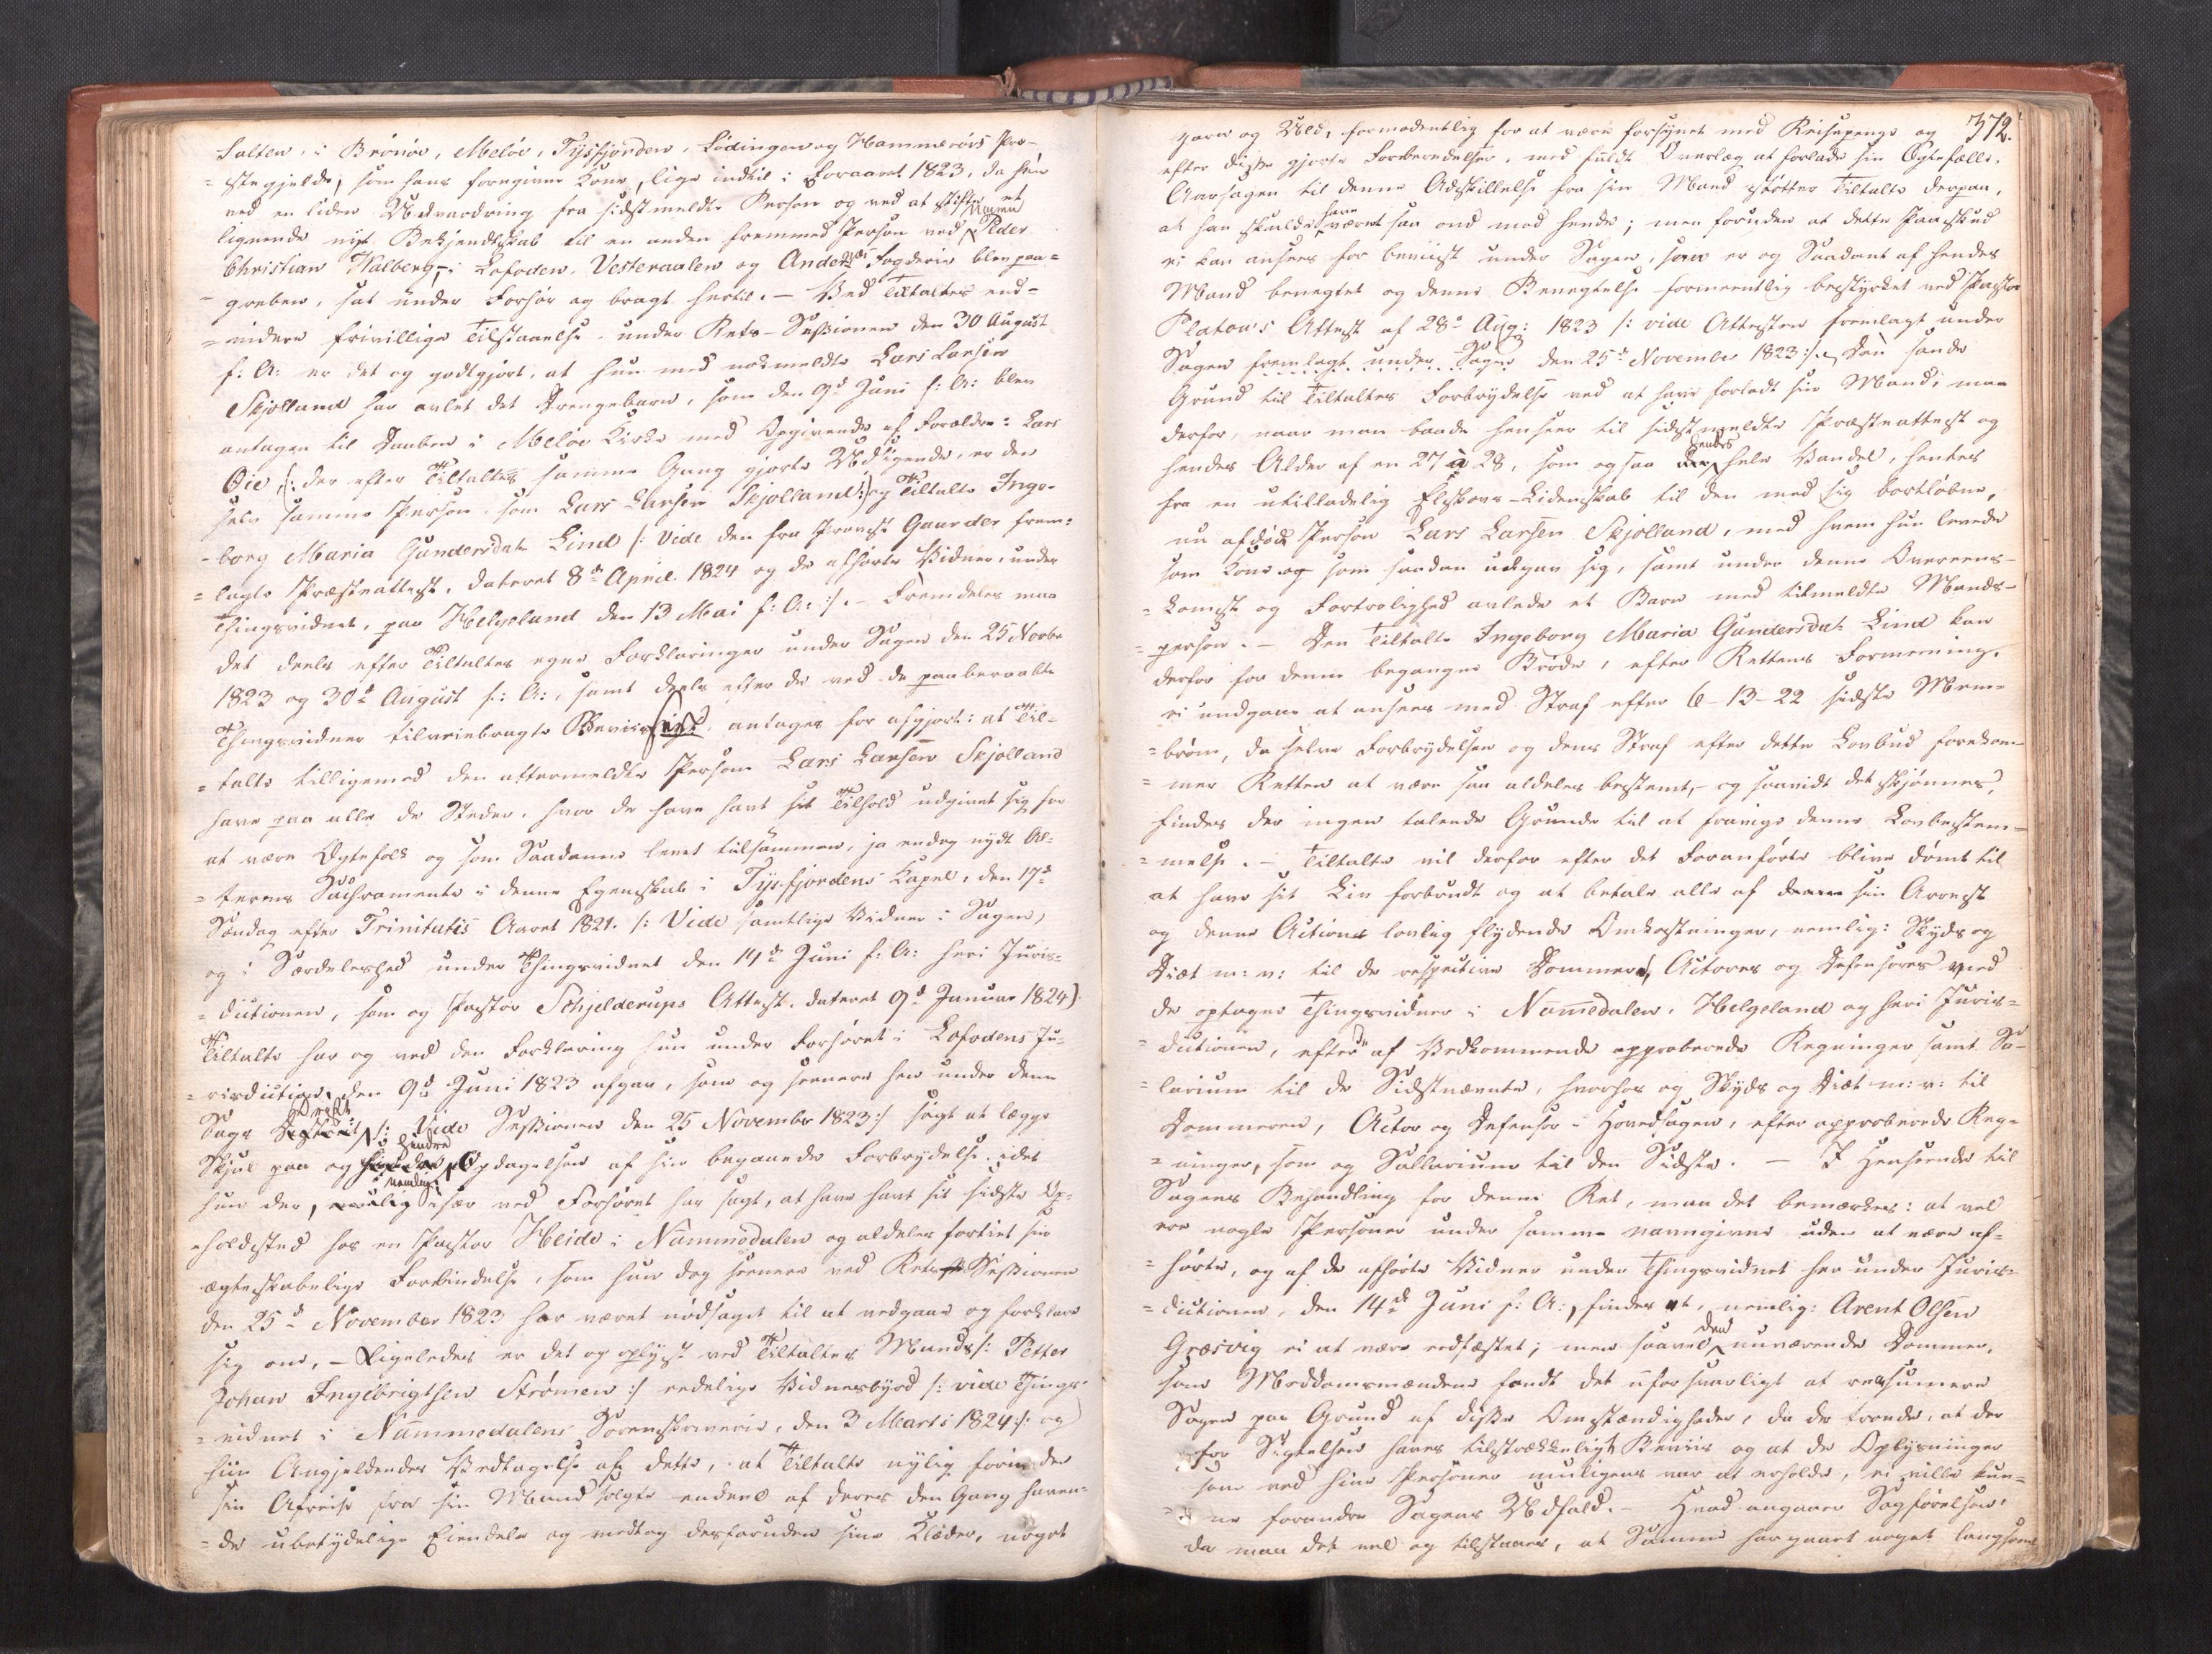 Salten, i Brönöe, Melöe, Tysfjorden, Lödingen og Hammeröes Præ-
=stegjelde, som hans foregivne Kone, lige indtil i Foraaret 1823, da hun
ved en liden Udvandring fra sidstmeldte Person og ved at stifte et
lignende nyt Bekjendtskab til en anden fremmed Person ved Navn Peder
Christian Walberg, i Lofoden, Vesteraalen og Andenæs Fogderie blev paa=
=greben, sat under Forhör og bragt hertil. — Ved Tiltaltes end=
=videre frivillige Tilstaaelse under Rets-Sessionen den 30 August
f: A: er det og godtgjort, at hun med nokmeldte Lars Larsen
Skjolland har avlet det Drengebarn, som den 9d Juni f: A: blev
antagen til Daaben i Melöe Kirke med Opgivende af Forældre: Lars
Öie, (: der efter Tiltaltes samme Gang gjorte Udsigende, er den
selv samme Person som Lars Larsen Skjolland:) og Tiltalte Inge-
-borg Maria Gundersdatr Lind /: Vide den fra Provst Gaarder frem=
=lagte Præsteattest, dateret 8de April 1824 og de afhörte Vidner, under
Thingsvidnet, paa Helgeland den 13 Mai f: A: :/. — Fremdeles maa
det deels efter Tiltaltes egne Forklaringer under Sagen den 25 Novbr
1823 og 30te August f: A:, samt deels efter de ved de paaberaabte
Thingsvidner tilveiebragte Beviisligt, antages for afgjort: at Til=
=talte tilligemed den oftermeldte Person Lars Larsen Skjolland
have paa alle de Steder, hvor de have havt sit Tilhold udgivet sig for
at være Ægtefolk og som Saadanne levet tilsammen, ja endog nydt Al=
=terens Sachramente i denne Egenskab i Tysfjordens Kapel, den 17de
Söndag efter Trinitatis Aaret 1821. /: Vide samtlige Vidner i Sagen,
og i Særdeleshed under Thingsvidnet den 14de Juni f: A: heri Juris=
=dictionen, som og Pastor Schjelderups Attest, dateret 9d Januar 1824).
Tiltalte har og ved den Forklaring hun under Forhöret i Lofodens Ju=
=risdiction, den 9d Juni 1823 afgav, som og seenere hen under denne
Sags Drift /: Vide Sessionen den 25 November 1823:/ sögt at lægge
Skjul paa og hindre Opdagelsen af sin begaaede Forbrydelse, idet
hun der, nemlig især ved Forhöret har sagt, at have havt sit sidste Op=
=holdssted hos en Pastor Heide i Nammedalen og aldeles fortiet sin
ægteskabelige Forbindelse, som hun dog seenere ved Rets Sessionen
den 25d November 1823 har været nödsaget til at vedgaae og forklare
sig om, — Ligeledes er det og oplyst ved Tiltaltes Mands /: Petter
Johan Ingebrigtsen Strömen :/ eedelige Vidnesbyrd /: vide Things=
=vidnet i Nammedalens Sorenskriverie, den 3 Marts 1824 :/ og
hün Angjeldendes Vedtagelse af dette, at Tiltalte nylig förinden
sin Afreise fra sin Mand solgte endeel af deres den Gang haven=
=de ubetydelige Eiendele og medtog desforuden sine Klæder, noget

372.
garn og Uld, formodentlig for at være forsynet med Reisepenge og
efter disse gjorte Forberedelser, med fuldt Overlæg at forlade sin Ægtefælle.
Aarsagen til denne Adskillelse fra sin Mand stötter Tiltalte derpaa,
at han skulde have været saa ond mod hende; men foruden at dette Paaskud
ei kan ansees for beviist under Sagen, saa er og Saadant af hendes
Mand benegtet og denne Benegtelse formeentlig bestyrket ved Pastor
Platou's Attest af 28de Aug: 1823 /: vide Attesten fremlagt under
Sagen fremlagt under Sagen den 25de November 1823:/. Den sande
Grund til Tiltaltes Forbrydelse ved at have forladt sin Mand, maa
derfor, naar man baade henseer til sidstmeldte Præsteattest og
hendes Alder af en 27 à 28, som ogsaa hendes hele Vandel, hentes
fra en utilladelig Elskovs-Lidenskab til den med sig bortlöbne,
nu afdöde Person Lars Larsen Skjolland, med hvem hun levede
som Kone og som saadan udgav sig, samt under denne Overeens-
=komst og Fortrolighed avlede et Barn med titmeldte Mands-
=person. — Den Tiltalte Ingeborg Maria Gundersdatr Lind kan
derfor for denne begangne Bröde, efter Rettens Formening,
ei undgaae at ansees med Straf efter 6-13-22 sidste Mem-
=brum, da selve Forbrydelsen og dens Straf efter dette Lovbud forekom-
=mer Retten at være saa aldeles bestemt, og saavidt det skjönnes,
findes der ingen talende Grunde til at fravige denne Lovbestem=
=melse. — Tiltalte vil derfor efter det Foranförte blive dömt til
at have sit Liv forbrudt og at betale alle af denne sin Arrest
og denne Action lovlig flydende Omkostninger, nemlig: Skyds og
Diæt m: v: til de respective Dommere, Actores og Defensores ved
de optagne Thingsvidner i Namedalen, Helgeland og heri Juris=
=dictionen, efter af Vedkommende approberede Regninger samt Sa-
=larium til de Sidstnævnte, hvorhos og Skyds og Diæt m: v: til
Dommeren, Actor og Defensor i Hovedsagen, efter approberede Reg=
=ninger, som og Sallarium til den Sidste. — I Henseende til
Sagens Behandling for denne Ret, maa det bemærkes: at vel
ere nogle Personer under samme navngivne uden at være af=
=hörte, og af de afhörte Vidner under Thingsvidnet her under Juris=
=dictionen, den 14de Juni f: A:, findes et, nemlig: Arent Olsen
Græsvig ei at være eedfæstet; men saavel den nuværende Dommer,
som Meddomsmændene fandt det uforsvarligt at reassumere
Sagen paa Grund af disse Omstændigheder, da de troede, at der
for Sigtelsen haves tilstrækkeligt Beviis og at de Oplysninger
som ved hine Personer muligens var at erholde, ei ville kun=
=ne forandre Sagens Udfald. — Hvad angaaer Sagförelsen,
da maa det vel og tilstaaes, at Samme har gaaet noget langsomt